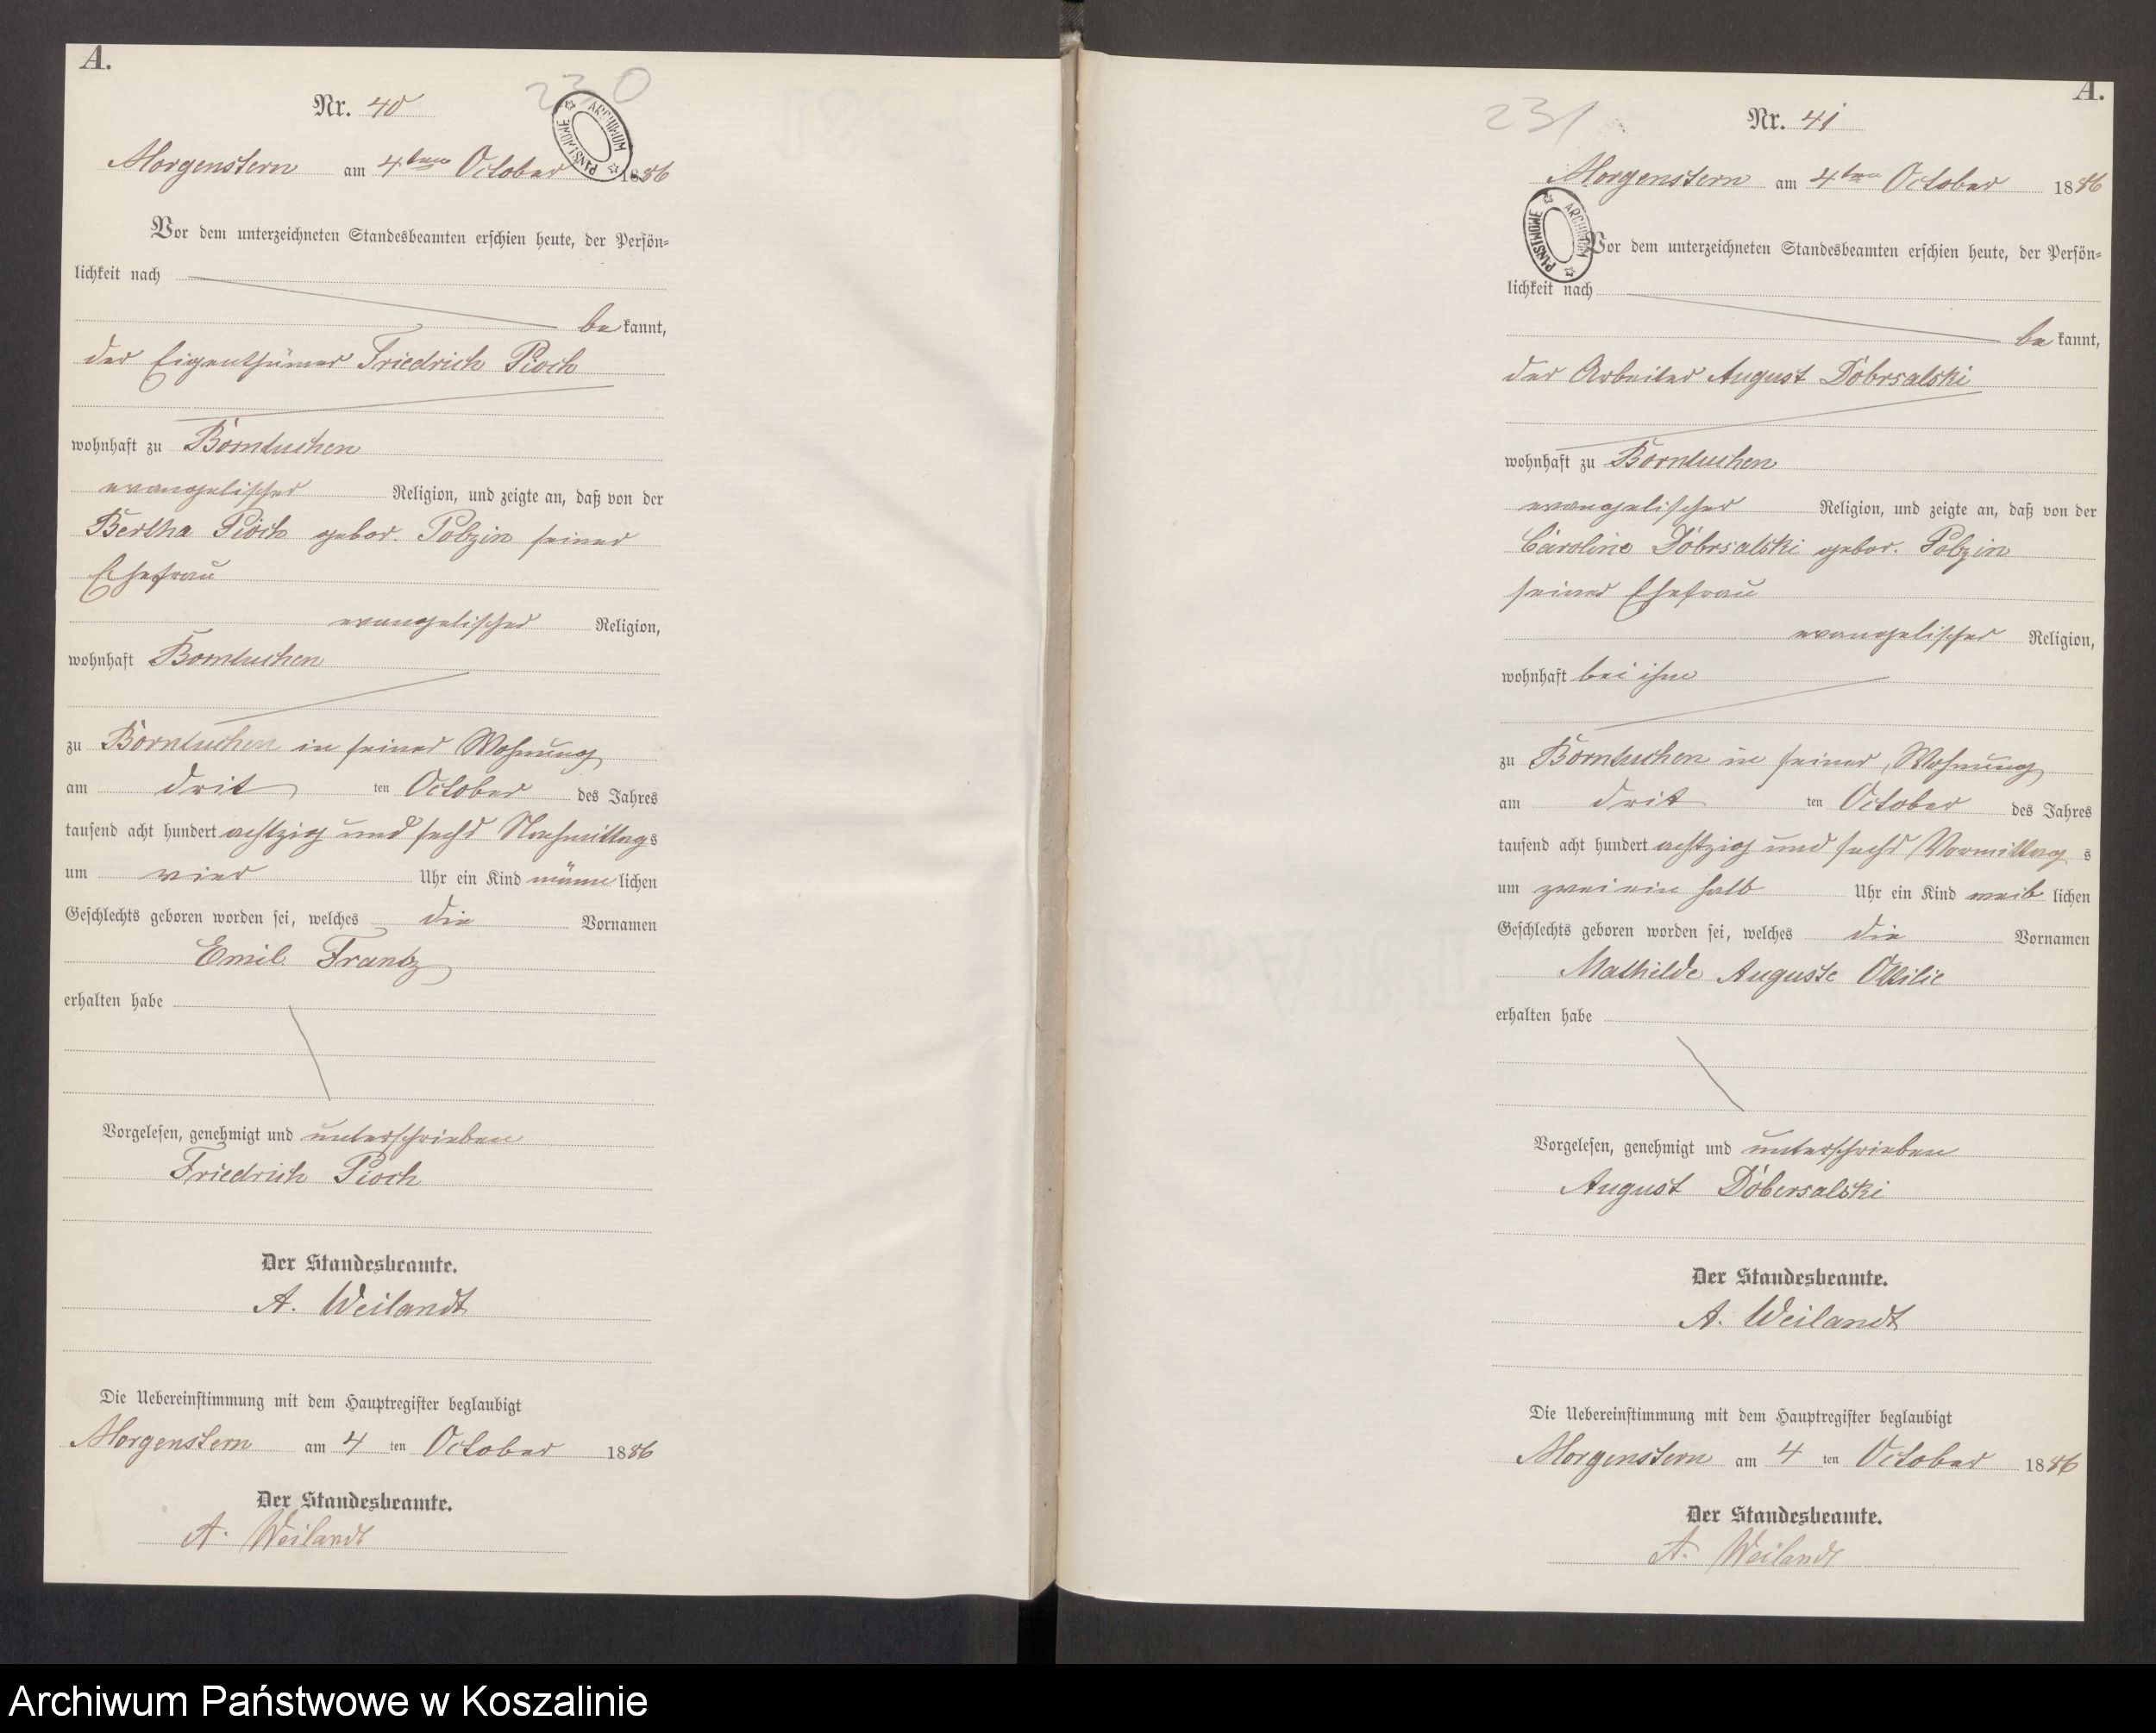 A.
230
Nr. 40
ARCHIWUM PAŃSTWOWE
Morgenstern am 4ten October 1886
Vor dem unterzeichneten Standesbeamten erschien heute, der Persön=
lichkeit nach
be kannt,
der Eigenthümer Friedrich Pioch
wohnhaft zu Borntuchen
evangelischer Religion, und zeigte an, daß von der
Bertha Pioch gebor. Polzin seiner
Ehefrau
evangelischer Religion,
wohnhaft Borntuchen
zu Borntuchen in seiner Wohnung
am drit ten October des Jahres
tausend acht hundert achtzig und sechs Nachmittags
um vier Uhr ein Kind männ lichen
Geschlechts geboren worden sei, welches die Vornamen
Emil Frantz
erhalten habe
Vorgelesen, genehmigt und unterschrieben
Friedrich Pioch
Der Standesbeamte.
A. Weilandt
Die Uebereinstimmung mit dem Hauptregister beglaubigt
Morgenstern am 4 ten October 1886
Der Standesbeamte.
A. Weilandt
A.
231
Nr. 41
Morgenstern am 4ten October 1886
ARCHIWUM PAŃSTWOWE
Vor dem unterzeichneten Standesbeamten erschien heute, der Persön=
lichkeit nach
be kannt,
der Arbeiter August Döbrsalski
wohnhaft zu Borntuchen
evangelischer Religion, und zeigte an, daß von der
Caroline Döbrsalski gebor. Polzin
seiner Ehefrau
evangelischer Religion,
wohnhaft bei ihm
zu Borntuchen in seiner Wohnung
am drit ten October des Jahres
tausend acht hundert achtzig und sechs Vormittag s
um zwei ein halb Uhr ein Kind weib lichen
Geschlechts geboren worden sei, welches die Vornamen
Mathilde Auguste Ottilie
erhalten habe
Vorgelesen, genehmigt und unterschrieben
August Döbersalski
Der Standesbeamte.
A. Weilandt
Die Uebereinstimmung mit dem Hauptregister beglaubigt
Morgenstern am 4 ten October 1886
Der Standesbeamte.
A. Weilandt
Archiwum Państwowe w Koszalinie